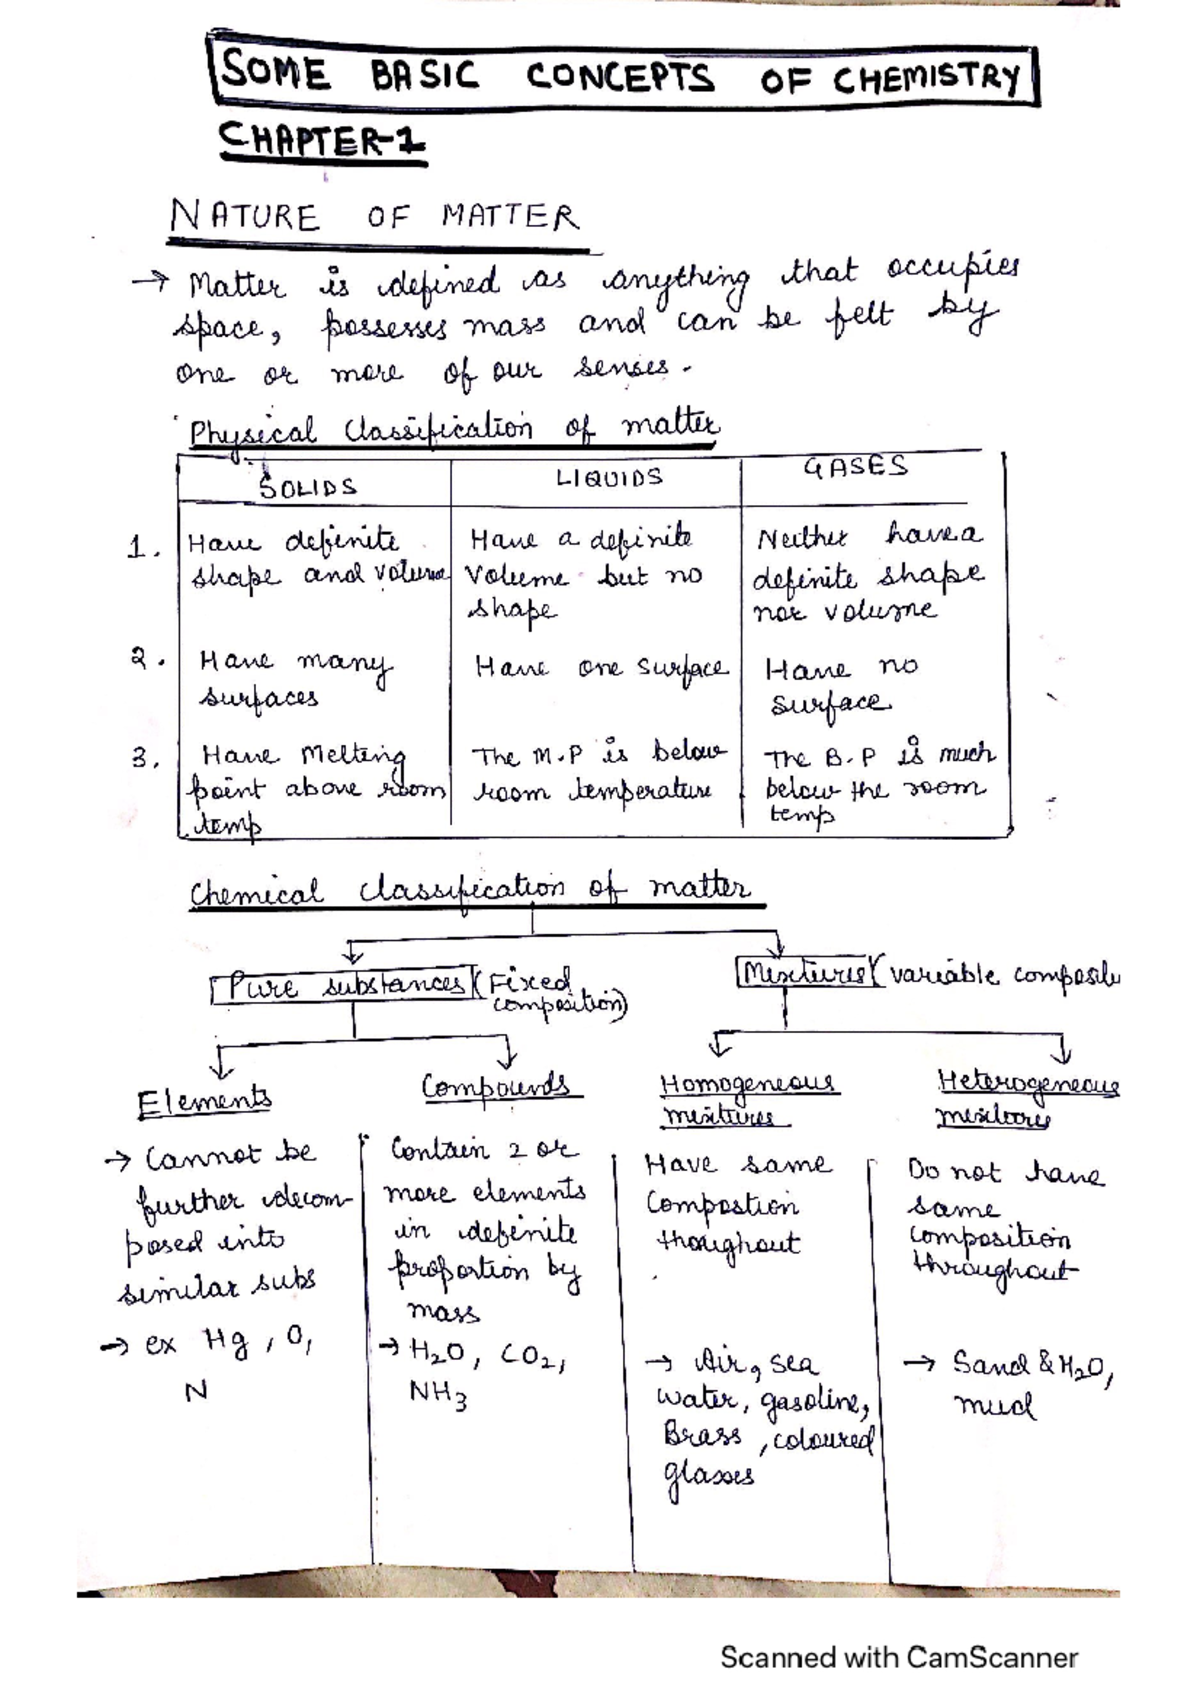 SOME BASIC CONCEPTS OF CHEMISTRY
CHAPTER-1
NATURE OF MATTER
→ Matter is defined as anything that occupies
space, possesses mass and can be felt by
one or more of our senses.
Physical classification of matter
SOLIDS
LIQUIDS
GASES
1. Have definite
shape and volume
Have a definite
volume but no
shape
Neither have a
definite shape
nor volume
2. Have many
surfaces
Have one surface
Have no
surface
3. Have Melting
point above room
temp
The M.P is below
room temperature
The B.P is much
below the room
temp
Chemical classification of matter
Pure substances (Fixed
composition)
Mixtures (variable compositi
Elements
→ Cannot be
further decom-
posed into
similar subs
→ ex Hg, O,
N
Compounds
Contain 2 or
more elements
in definite
proportion by
mass
→ H2O, CO2,
NH3
Homogeneous
mixtures
Have same
Compostion
throughout
→ Air, sea
water, gasoline,
Brass, coloured
glasses
Heterogeneous
mixtures
Do not have
same
composition
throughout
→ Sand & H2O,
mud
Scanned with CamScanner